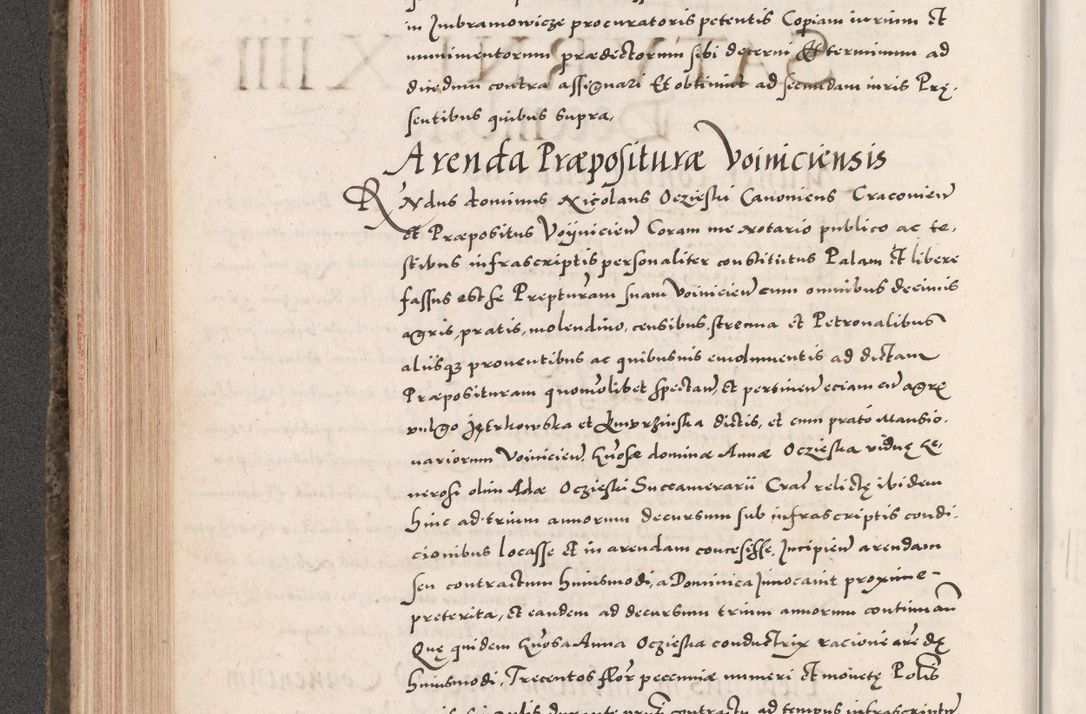 in Imbramowicze procuratoris petentis Copiam iurium et
munimentorum prædectorum sibi decerni Et terminum ad
dicedum contra assignari Et obtinuit ad secundam iuris Prę-
sentibus quibus supra,
Arenda Præpositurae Voiniciensis
RNdus dominus Nicolaus Oczieski Canonicus Cracovien
et Præpositus Voijnicien Coram me Notario publico ac te,
stibus infrascriptis personaliter constitutus Palam Et libere
fassus est se Prepturam suam Voinicien cum omnibus decimis
agris, pratis, molendino, censibus, strenna et Petronalibus
aliisq3 proventibus ac quibusvis emolumentis ad dictam
Præposituram quomolibet spectan, et pertinen eciam cu agrę
vulgo Jętrkowska et dictis, et cum prato Mansio-
nariorum Voinicien, Gnosæ dominæ Annæ Oczieska viduę Ge-
nerosi olim Adæ Oczieski Succamerarii Crac relictę ibidem
hinc ad trium annorum decursum sub infrascriptis condi-
cionibus locasse Et in arendam concesisse, Incipien arendam
seu contractum huiusmodi, a Dominica Invocavit proxime
preterita, et eandem ad decursum trium annorum continuan
Quę quidem Gnosa Anna Oczieska conductrix racione arędę
huiusmodi, Trecentos flor pecuniæ numeri et monetę Polis
durante contractu ad tempus infrascriptu